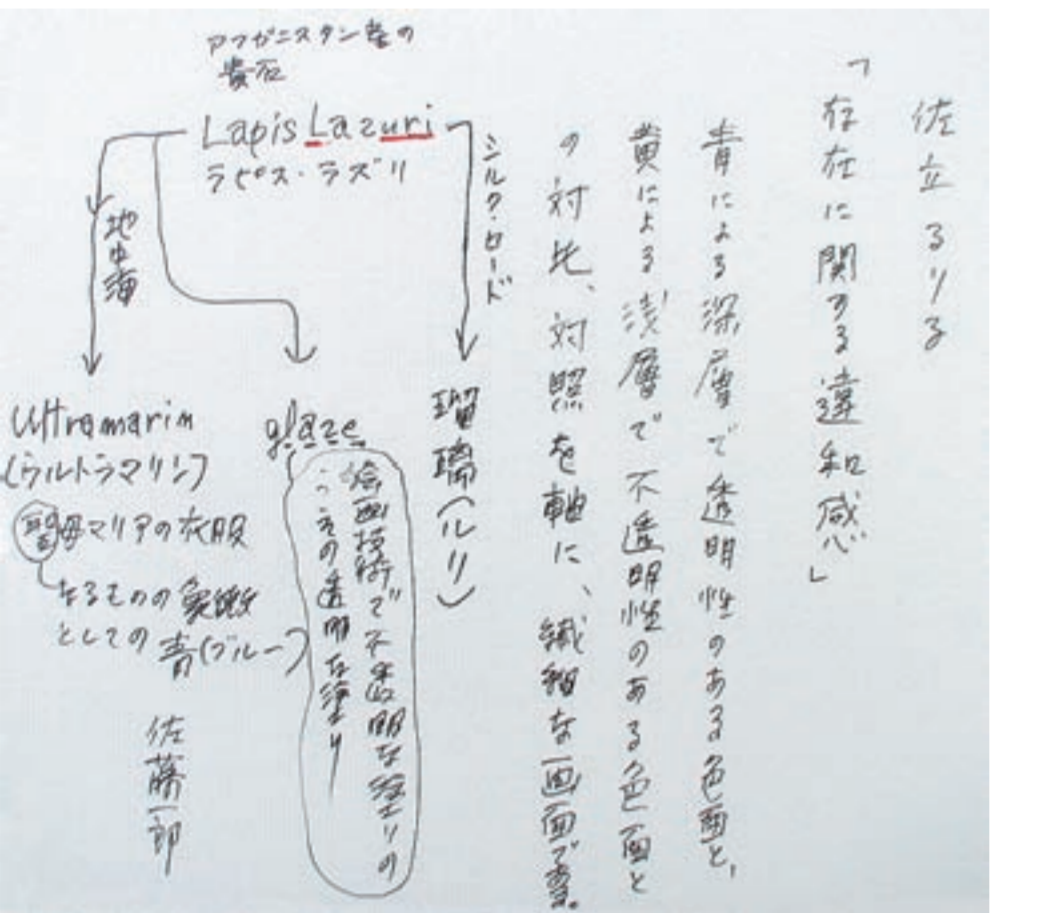 佐立るりる
「存在に関する違和感」
青による深層で透明性のある色面と、
黄による浅層で不透明性のある色面と
の対比、対照を軸に、繊細な画面で
アフガニスタン産の
貴石
Lapis Lazuri
ラピス・ラズリ
シルク・ロード
瑠璃(ルリ)
glaze
絵画技術で不透明な塗りの
うえの透明な塗り
地中海
Ultramarin
(ウルトラマリン)
聖母マリアの衣服
なるものの象徴
としての青(ブルー)
佐藤一郎